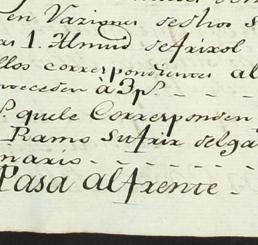 en Vaziones dedhos
as 1. Almud defrixol
llos correspondientes al
nteceden à 3p.s
s. quele Corresponden
Ramo Sufrir delga
nario
Pasa alfrente